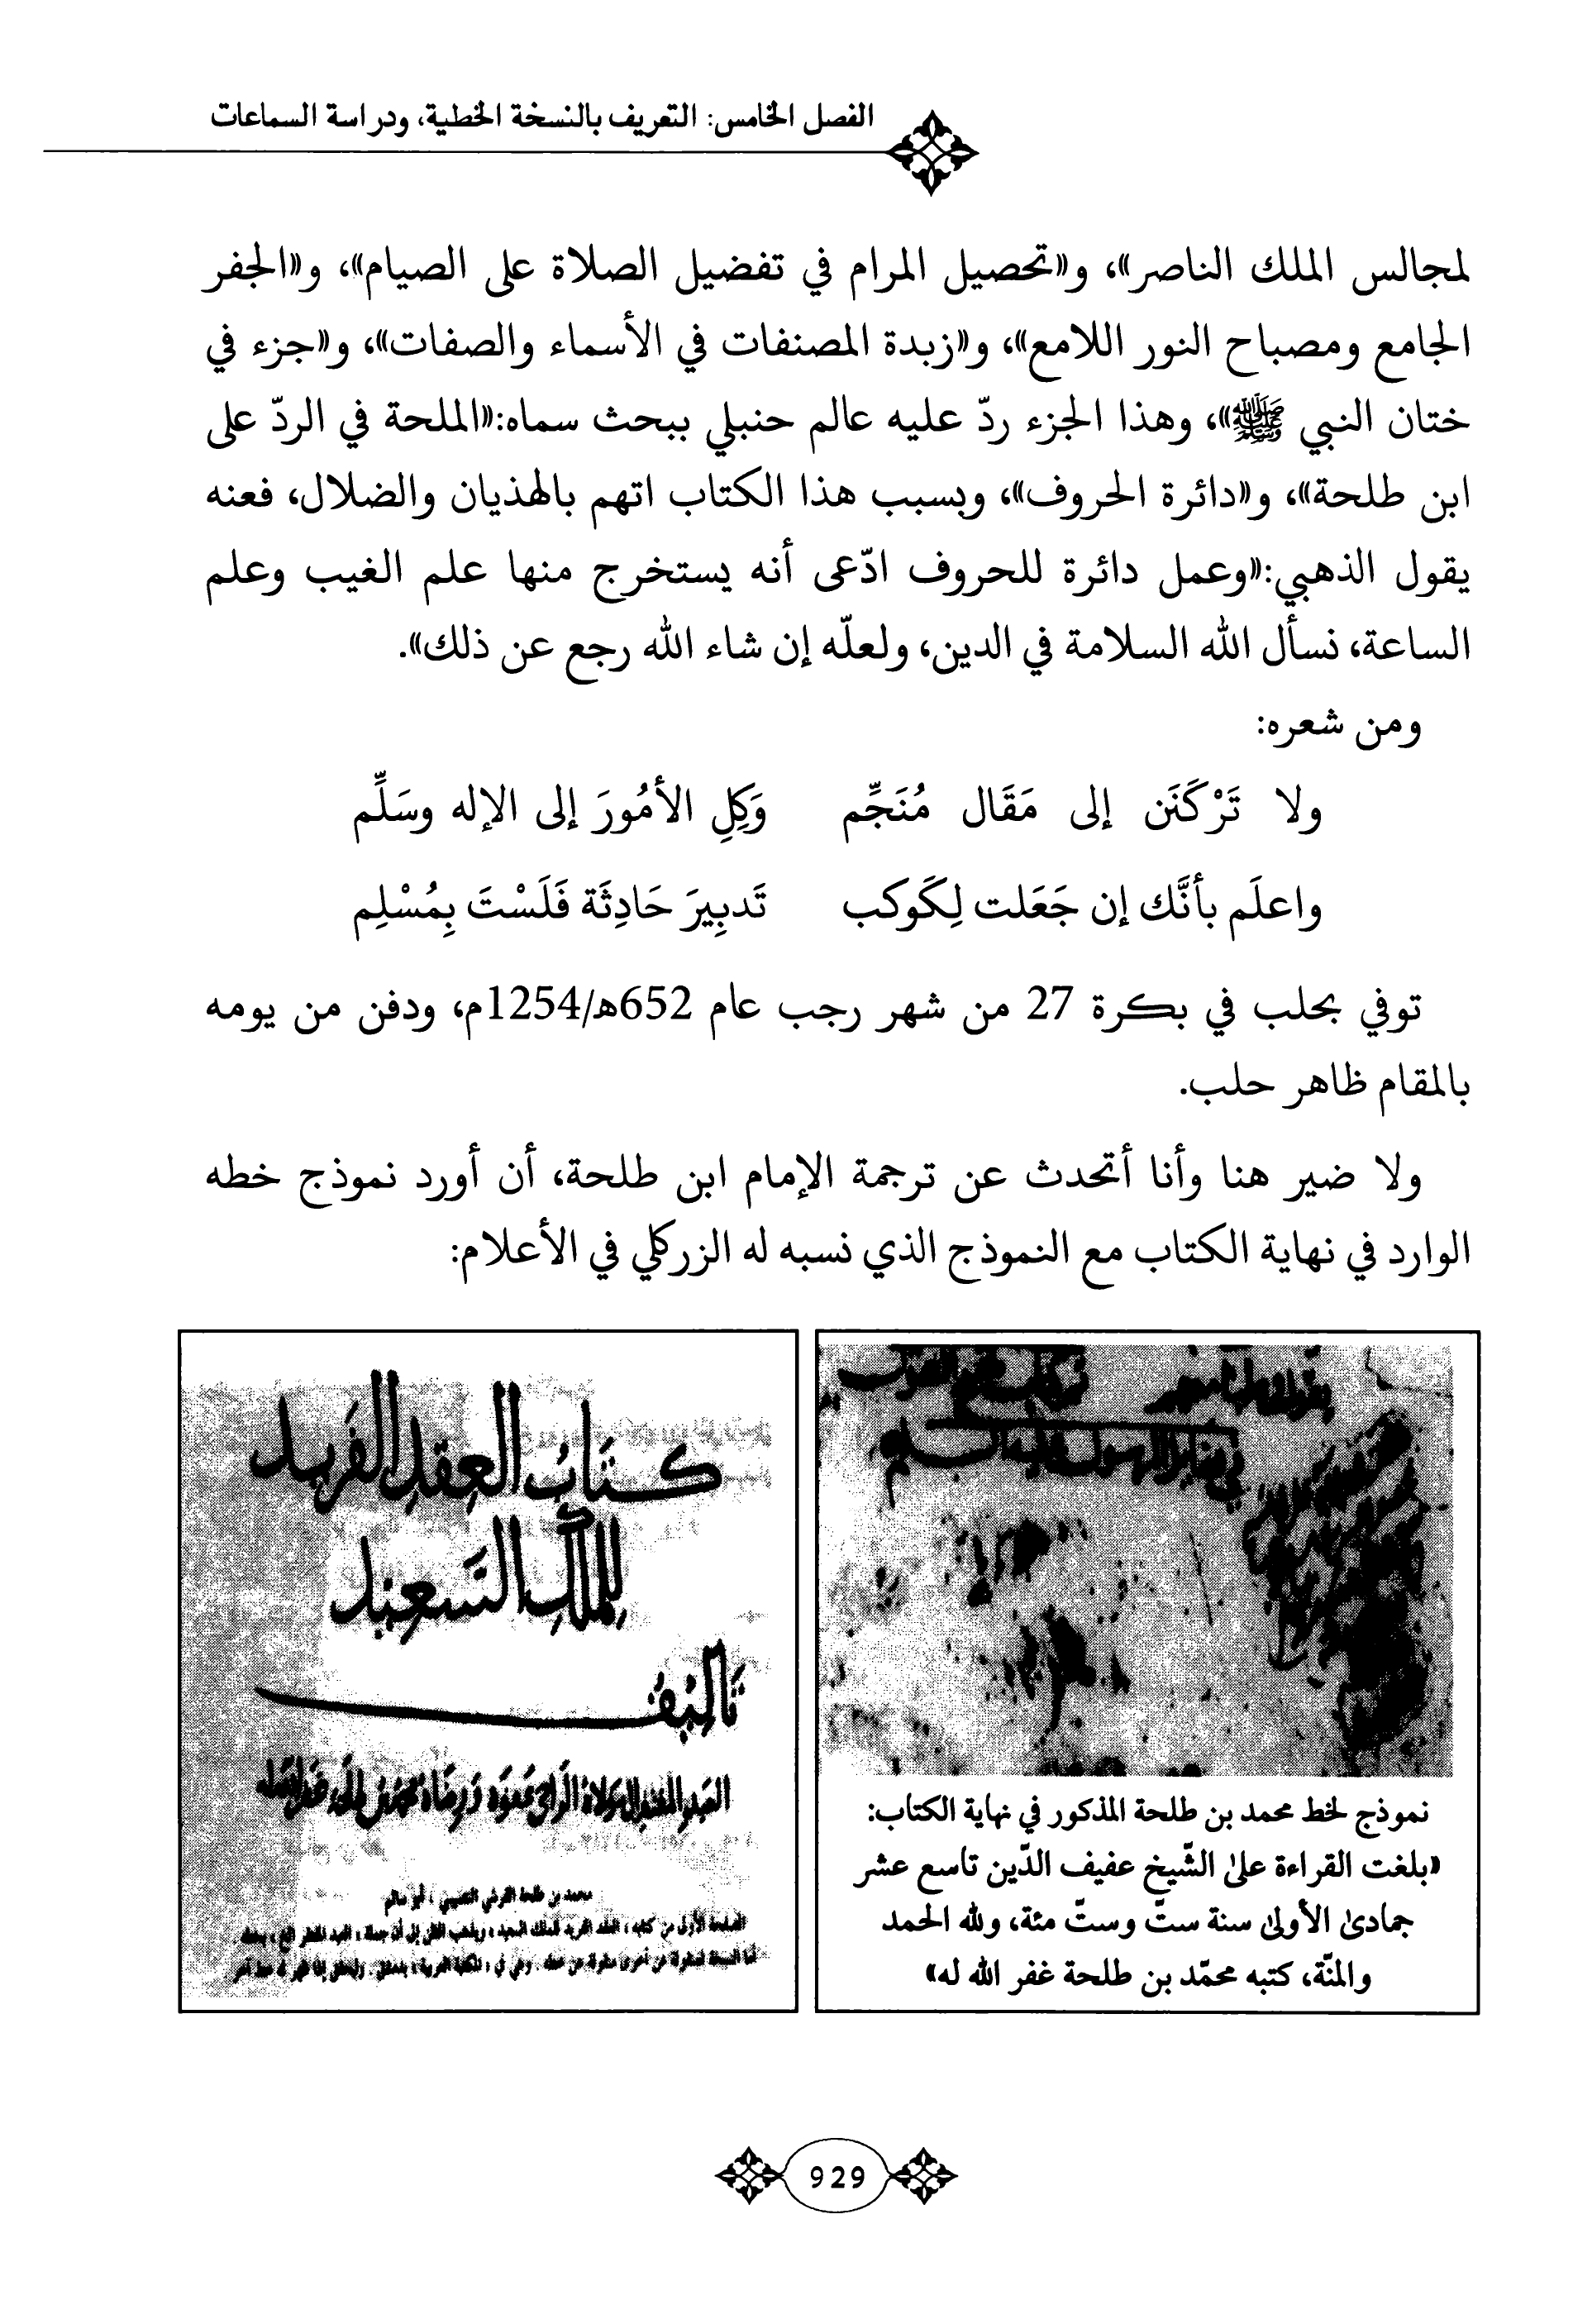 الفصل الخامس: التعريف بالنسخة الخطية، ودراسة السماعات
لمجالس الملك الناصر»، و«تحصيل المرام في تفضيل الصلاة على الصيام»، و«الجفر
الجامع ومصباح النور اللامع»، و«زبدة المصنفات في الأسماء والصفات»، و«جزء في
ختان النبي ﷺ»، وهذا الجزء ردّ عليه عالم حنبلي ببحث سماه:«الملحة في الردّ على
ابن طلحة»، و«دائرة الحروف»، وبسبب هذا الكتاب اتهم بالهذيان والضلال، فعنه
يقول الذهبي:«وعمل دائرة للحروف ادّعى أنه يستخرج منها علم الغيب وعلم
الساعة، نسأل الله السلامة في الدين، ولعلّه إن شاء الله رجع عن ذلك».
ومن شعره:
ولا تَرْكَنَن إلى مَقَال مُنَجِّم وَكِلِ الأمُورَ إلى الإله وسَلِّم
واعلَم بأنَّك إن جَعَلت لِكَوكب تَدبِيرَ حَادِثَة فَلَسْتَ بِمُسْلِم
توفي بحلب في بكرة 27 من شهر رجب عام 652ه/1254م، ودفن من يومه
بالمقام ظاهر حلب.
ولا ضير هنا وأنا أتحدث عن ترجمة الإمام ابن طلحة، أن أورد نموذج خطه
الوارد في نهاية الكتاب مع النموذج الذي نسبه له الزركلي في الأعلام:
نموذج لخط محمد بن طلحة المذكور في نهاية الكتاب:
«بلغت القراءة على الشّيخ عفيف الدّين تاسع عشر
جمادى الأولى سنة ستّ وستّ مئة، ولله الحمد
والمنّة، كتبه محمّد بن طلحة غفر الله له»
كتاب العقد الفريد
للملك السعيد
تأليف
محمد بن طلحة القرشي النصيبي ، أبو سالم
929